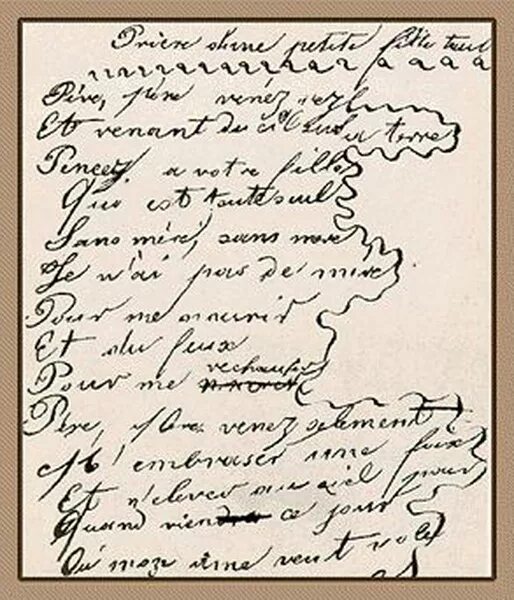 Prière d'une petite fille tout
Père, père venez
Et venant du ciel sur la terre
Pencez a votre fille
Qui est toute seul
Sans mère, sans
Je n'ai pas de
Pour me nourir
Et du feux
Pour me rechaufer
Père, père venez selement
M'embraser une foix
Et n'elever au ciel pour
Quand viendra ce jour
Ou mon âme veut